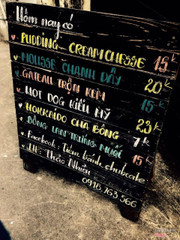 Hôm nay có
PUDDING - CREAM CHESSE 15K
MOUSSE CHANH DÂY 20K
GATEAU TRỘN KEM 15K
HOT DOG KIỂU MỸ 15K
HOKKAIDO CHÀ BÔNG 23K
BÔNG LAN TRỨNG MUỐI 7K
Facebook: Tiệm bánh chubcake 15K
LH: Thảo Nhiên
0918.763.566